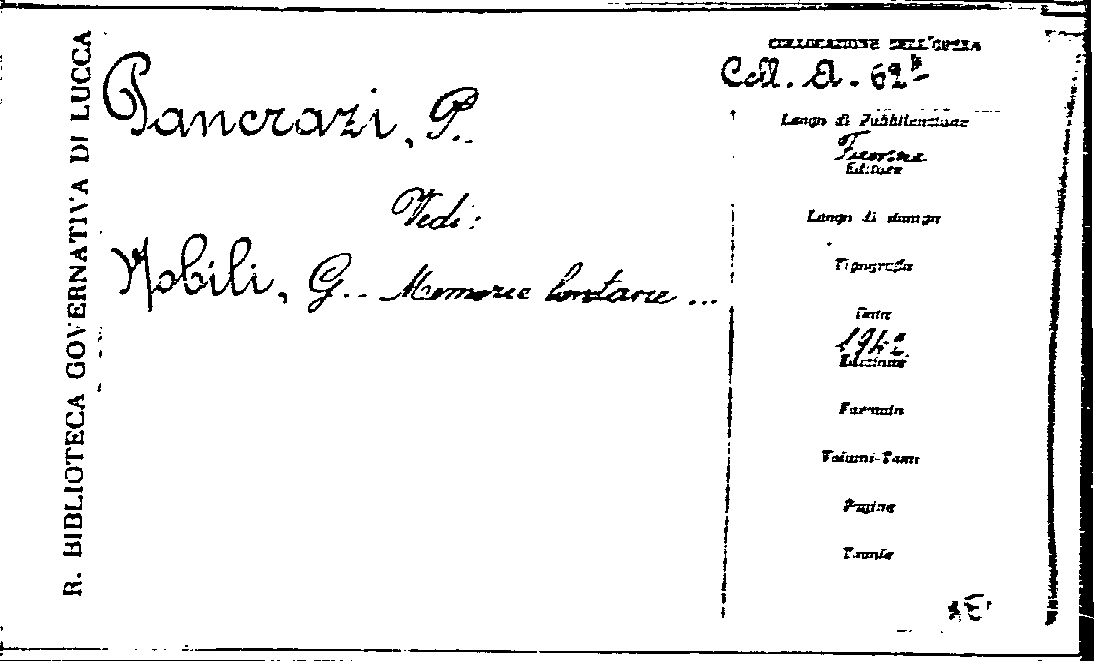 R. BIBLIOTECA GOVERNATIVA DI LUCCA
Pancrazi, P.
Vedi:
Nobili, G. Memorie lontane ...
COLLOCAZIONE DELL'OPERA
Coll. A. 62
Luogo di Pubblicazione
Firenze
Editore
Luogo di stampa
Tipografia
Data
1942
Edizione
Formato
Volumi-Tomi
Pagine
Tavole